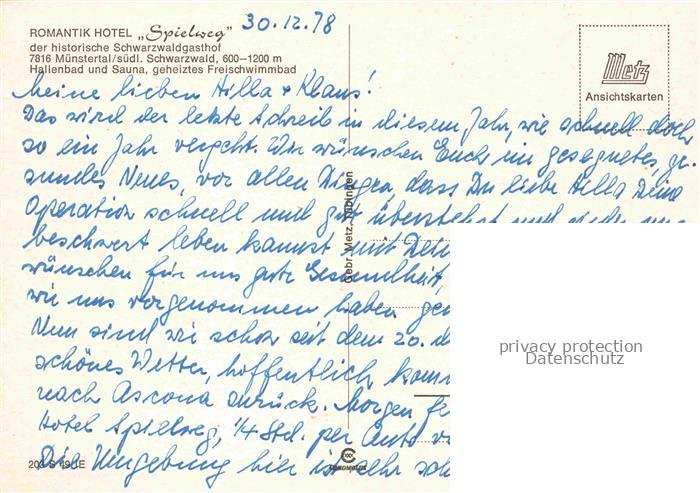 30.12.78
ROMANTIK HOTEL „Spielweg"
der historische Schwarzwaldgasthof
7816 Münstertal/südl. Schwarzwald, 600—1200 m
Hallenbad und Sauna, geheiztes Freischwimmbad
Metz
Ansichtskarten
Meine lieben Hilla + Klaus!
Das wird der letzte Schreib in diesem Jahr, wie schnell doch
so ein Jahr vergeht. Wir wünschen Euch ein gesegnetes, ge-
sundes Neues, vor allen Dingen, dass Du liebe Hilla Deine
Operation schnell und gut überstehst und
beschwert leben kannst mit
wünschen für uns gute Gesundheit,
wir uns vorgenommen haben
Nun sind wir schon seit dem 20.
schönes Wetter, hoffentlich
nach Ascona zurück. Morgen
Hotel Spielweg, 1/4 Std. per Auto
Die Umgebung hier ist sehr
Gebr. Metz, Tübingen
privacy protection
Datenschutz